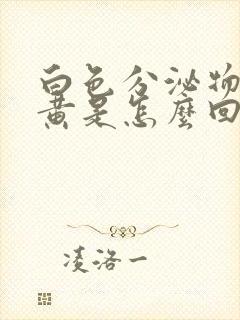 白色分泌物
黄是怎麼回
凌洛一